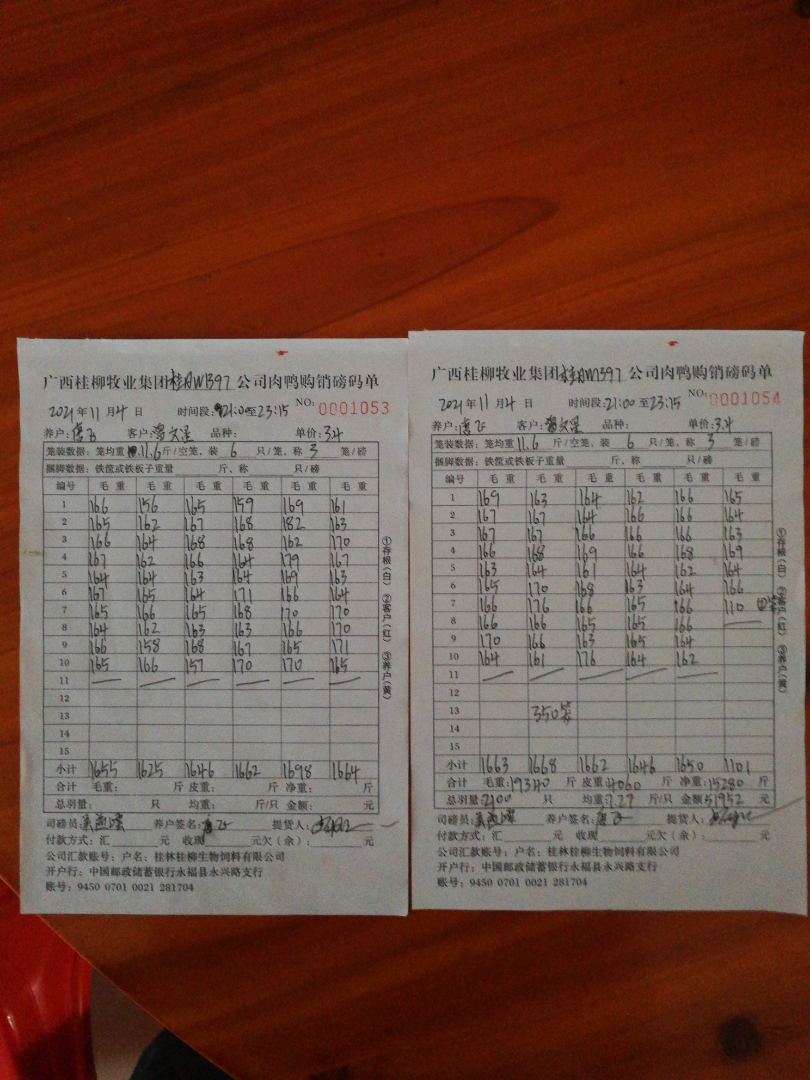 广西桂柳牧业集团桂柳W1397公司肉鸭购销磅码单
2021年11月4日 时间段:21:00至23:15 NO:0001053
养户:唐飞 客户: 品种: 单价:3.4
笼装数据:笼均重11.6斤/空笼,装6只/笼,称3笼/磅
捆脚数据:铁筐或铁板子重量 斤,称 只/磅
编号 毛重 毛重 毛重 毛重 毛重 毛重
1 166 156 165 159 169 161
2 165 162 167 168 182 163
3 166 164 168 168 162 170
4 167 162 166 164 179 167
5 164 164 163 164 169 163
6 167 165 164 171 166 164
7 165 166 165 168 170 170
8 164 162 163 163 166 170
9 166 158 168 167 165 171
10 165 166 157 170 170 165
11 — — — — — —
12
13
14
15
小计 1655 1625 1646 1662 1698 1664
合计 毛重: 斤 皮重: 斤 净重: 斤
总羽量: 只 均重: 斤/只 金额: 元
司磅员: 养户签名:唐飞 提货人:
付款方式:汇 元 收现 元欠(余): 元
公司汇款账号:户名:桂林桂柳生物饲料有限公司
开户行:中国邮政储蓄银行永福县永兴路支行
账号:9450 0701 0021 281704
①存根(白) ②客户(红) ③养户(黄)
广西桂柳牧业集团桂柳W1397公司肉鸭购销磅码单
2021年11月4日 时间段:21:00至23:15 NO:0001054
养户:唐飞 客户: 品种: 单价:3.4
笼装数据:笼均重11.6斤/空笼,装6只/笼,称3笼/磅
捆脚数据:铁筐或铁板子重量 斤,称 只/磅
编号 毛重 毛重 毛重 毛重 毛重 毛重
1 169 163 164 162 166 165
2 167 167 164 166 166 164
3 167 167 166 166 166 163
4 166 168 169 166 168 169
5 163 164 161 164 162 164
6 165 170 168 163 164 166
7 166 176 166 165 166 110
8 166 166 165 165 166 —
9 170 166 163 165 164
10 164 161 176 164 162
11 — — — — —
12
13 350笼
14
15
小计 1663 1668 1662 1646 1650 1101
合计 毛重:19340斤 皮重:4060斤 净重:15280斤
总羽量:2100只 均重:7.27斤/只 金额:51952元
司磅员: 养户签名:唐飞 提货人:
付款方式:汇 元 收现 元欠(余): 元
公司汇款账号:户名:桂林桂柳生物饲料有限公司
开户行:中国邮政储蓄银行永福县永兴路支行
账号:9450 0701 0021 281704
①存根(白) ②客户(红) ③养户(黄)